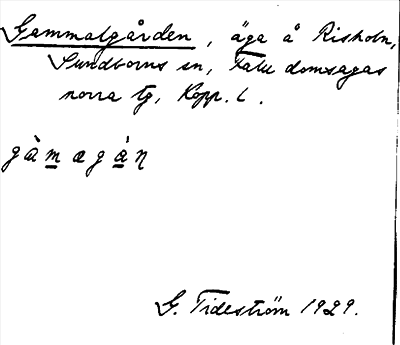 Gammalgården, äga å Risholn,
Sundborns sn, Falu domsagas
norra tg, Kopp. l.
gàmægȧ́ɳ
G. Tideström 1929.